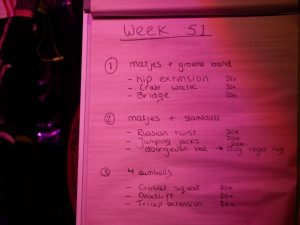 Week 51
1 matjes + groene band
- hip extension 20x
- Crab walk 20x
- Bridge 20x
2 matjes + slamball
- Russian twist 20x
- Jumping jacks 20x
- doorgeven bal → rug tegen rug 20x
3 4 dumballs
- Goblet squat 20x
- Deadlift 20x
- Tricep extension 20x